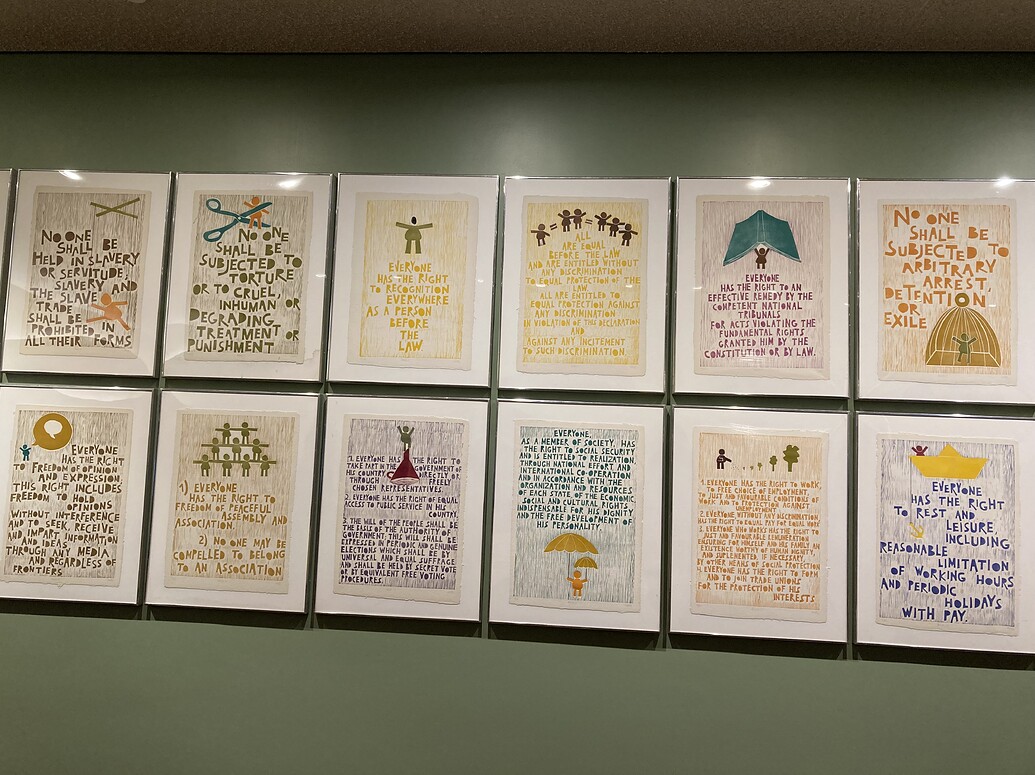 NO ONE
SHALL BE
HELD IN SLAVERY
OR SERVITUDE,
SLAVERY AND
THE SLAVE
TRADE
SHALL BE
PROHIBITED IN
ALL THEIR FORMS
NO ONE
SHALL BE
SUBJECTED TO
TORTURE
OR TO CRUEL,
INHUMAN OR
DEGRADING
TREATMENT OR
PUNISHMENT
EVERYONE
HAS THE RIGHT
TO RECOGNITION
EVERYWHERE
AS A PERSON
BEFORE
THE
LAW.
ALL
ARE EQUAL
BEFORE THE LAW
AND ARE ENTITLED WITHOUT
ANY DISCRIMINATION
TO EQUAL PROTECTION OF THE
LAW.
ALL ARE ENTITLED TO
EQUAL PROTECTION AGAINST
ANY DISCRIMINATION
IN VIOLATION OF THIS DECLARATION
AND
AGAINST ANY INCITEMENT
TO SUCH DISCRIMINATION.
EVERYONE
HAS THE RIGHT TO AN
EFFECTIVE REMEDY BY THE
COMPETENT NATIONAL
TRIBUNALS
FOR ACTS VIOLATING THE
FUNDAMENTAL RIGHTS
GRANTED HIM BY THE
CONSTITUTION OR BY LAW.
NO ONE
SHALL BE
SUBJECTED TO
ARBITRARY
ARREST,
DETENTION
OR
EXILE
EVERYONE
HAS THE RIGHT
TO FREEDOM OF OPINION
AND EXPRESSION,
THIS RIGHT INCLUDES
FREEDOM TO HOLD
OPINIONS
WITHOUT INTERFERENCE
AND TO SEEK, RECEIVE
AND IMPART INFORMATION
AND IDEAS
THROUGH ANY MEDIA
AND REGARDLESS OF
FRONTIERS
1) EVERYONE
HAS THE RIGHT TO
FREEDOM OF PEACEFUL
ASSEMBLY AND
ASSOCIATION.
2) NO ONE MAY BE
COMPELLED TO BELONG
TO AN ASSOCIATION
1. EVERYONE HAS THE RIGHT TO
TAKE PART IN THE GOVERNMENT OF
HIS COUNTRY, DIRECTLY OR
THROUGH FREELY
CHOSEN REPRESENTATIVES.
2. EVERYONE HAS THE RIGHT OF EQUAL
ACCESS TO PUBLIC SERVICE IN HIS
COUNTRY.
3. THE WILL OF THE PEOPLE SHALL BE
THE BASIS OF THE AUTHORITY OF
GOVERNMENT; THIS WILL SHALL BE
EXPRESSED IN PERIODIC AND GENUINE
ELECTIONS WHICH SHALL BE BY
UNIVERSAL AND EQUAL SUFFRAGE
AND SHALL BE HELD BY SECRET VOTE
OR BY EQUIVALENT FREE VOTING
PROCEDURES.
EVERYONE,
AS A MEMBER OF SOCIETY, HAS
THE RIGHT TO SOCIAL SECURITY
AND IS ENTITLED TO REALIZATION,
THROUGH NATIONAL EFFORT AND
INTERNATIONAL CO-OPERATION
AND IN ACCORDANCE WITH THE
ORGANIZATION AND RESOURCES
OF EACH STATE, OF THE ECONOMIC,
SOCIAL AND CULTURAL RIGHTS
INDISPENSABLE FOR HIS DIGNITY
AND THE FREE DEVELOPMENT OF
HIS PERSONALITY.
1. EVERYONE HAS THE RIGHT TO WORK,
TO FREE CHOICE OF EMPLOYMENT,
TO JUST AND FAVOURABLE CONDITIONS OF
WORK AND TO PROTECTION AGAINST
UNEMPLOYMENT.
2. EVERYONE WITHOUT ANY DISCRIMINATION
HAS THE RIGHT TO EQUAL PAY FOR EQUAL WORK
3. EVERYONE WHO WORKS HAS THE RIGHT TO
JUST AND FAVOURABLE REMUNERATION
ENSURING FOR HIMSELF AND HIS FAMILY AN
EXISTENCE WORTHY OF HUMAN DIGNITY,
AND SUPLEMENTED, IF NECESSARY,
BY OTHER MEANS OF SOCIAL PROTECTION
4. EVERYONE HAS THE RIGHT TO FORM
AND TO JOIN TRADE UNIONS
FOR THE PROTECTION OF HIS
INTERESTS
EVERYONE
HAS THE RIGHT
TO REST AND
LEISURE,
INCLUDING
REASONABLE
LIMITATION
OF WORKING HOURS
AND PERIODIC
HOLIDAYS
WITH PAY.